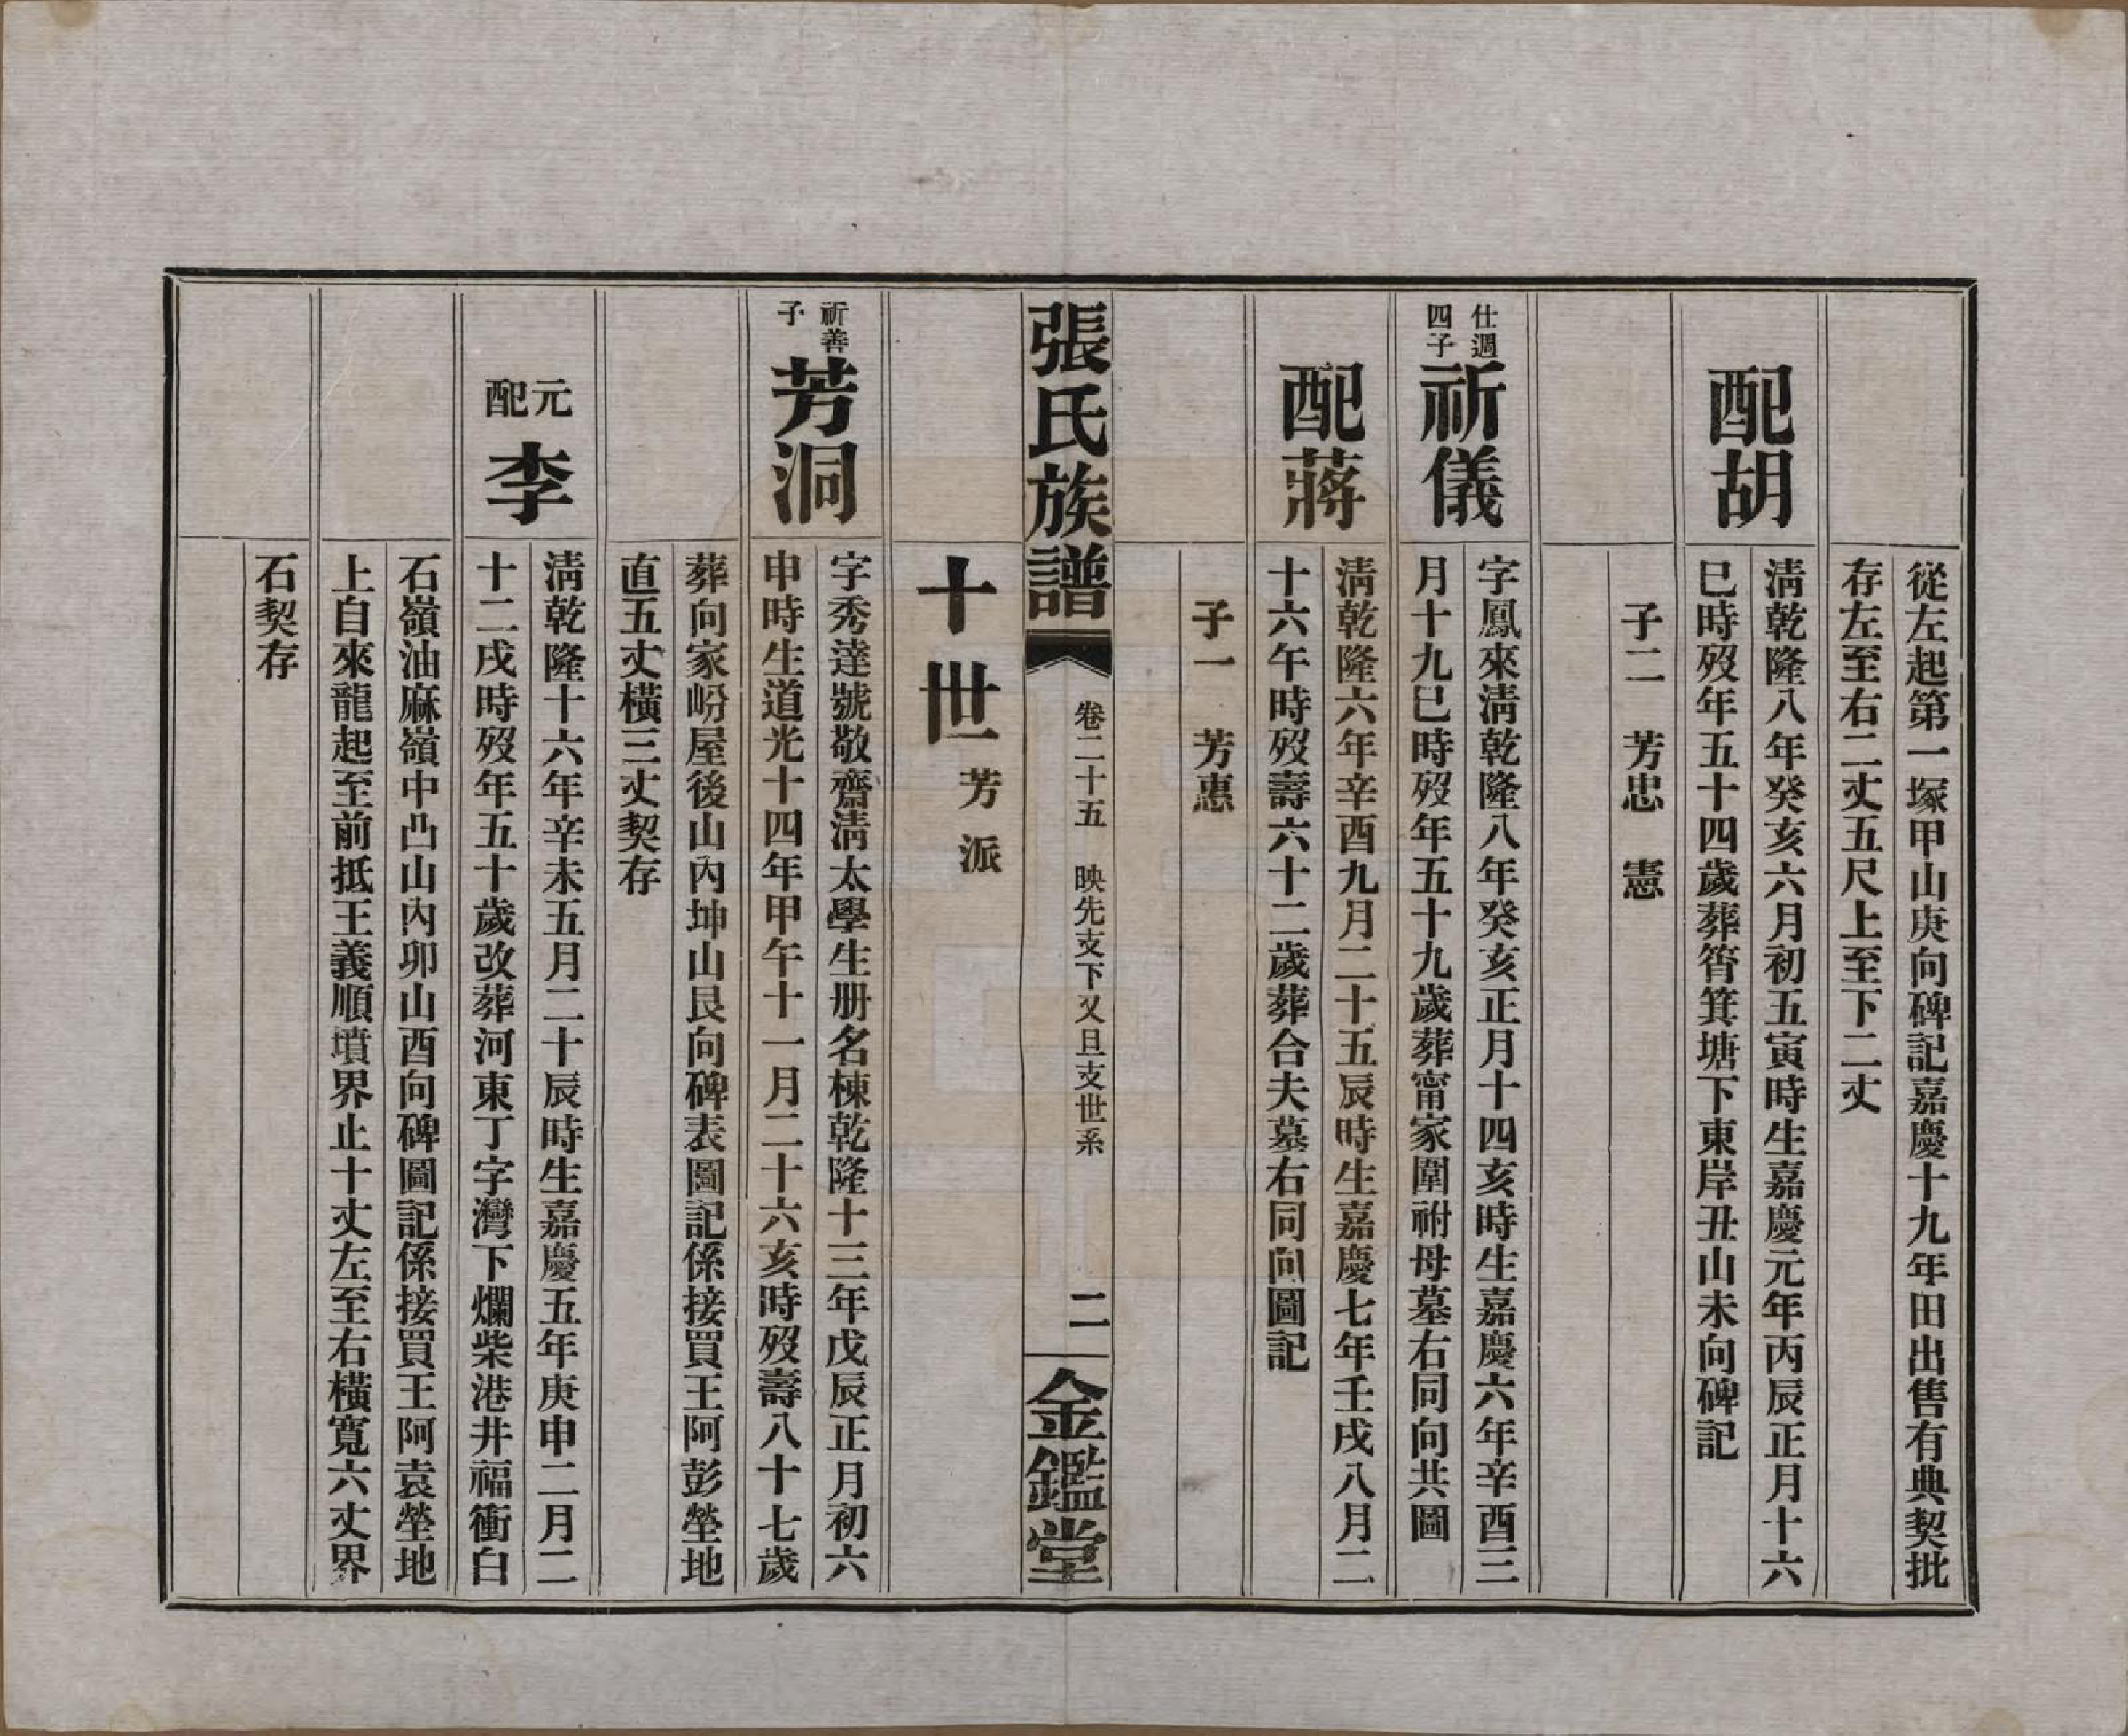 從左起第一塚甲山庚向碑記嘉慶十九年田出售有典契批
存左至右二丈五尺上至下二丈
配胡
清乾隆八年癸亥六月初五寅時生嘉慶元年丙辰正月十六
巳時歿年五十四歲葬筲箕塘下東岸丑山未向碑記
子二　芳忠　憲
仕週
四子
祈儀
字鳳來清乾隆八年癸亥正月十四亥時生嘉慶六年辛酉三
月十九巳時歿年五十九歲葬甯家圍祔母墓右同向共圖
配蔣
清乾隆六年辛酉九月二十五辰時生嘉慶七年壬戌八月二
十六午時歿壽六十二歲葬合夫墓右同向圖記
子一　芳惠
張氏族譜
卷二十五　映先支下又旦支世系
二
金鑑堂
十世芳派
祈善
子
芳洞
字秀達號敬齋清太學生册名棟乾隆十三年戊辰正月初六
申時生道光十四年甲午十一月二十六亥時歿壽八十七歲
葬向家岎屋後山內坤山艮向碑表圖記係接買王阿彭塋地
直五丈橫三丈契存
元配
李
清乾隆十六年辛未五月二十辰時生嘉慶五年庚申二月二
十二戌時歿年五十歲改葬河東丁字灣下爛柴港井福衝白
石嶺油麻嶺中凸山內卯山酉向碑圖記係接買王阿袁塋地
上自來龍起至前抵王義順墳界止十丈左至右橫寬六丈界
石契存